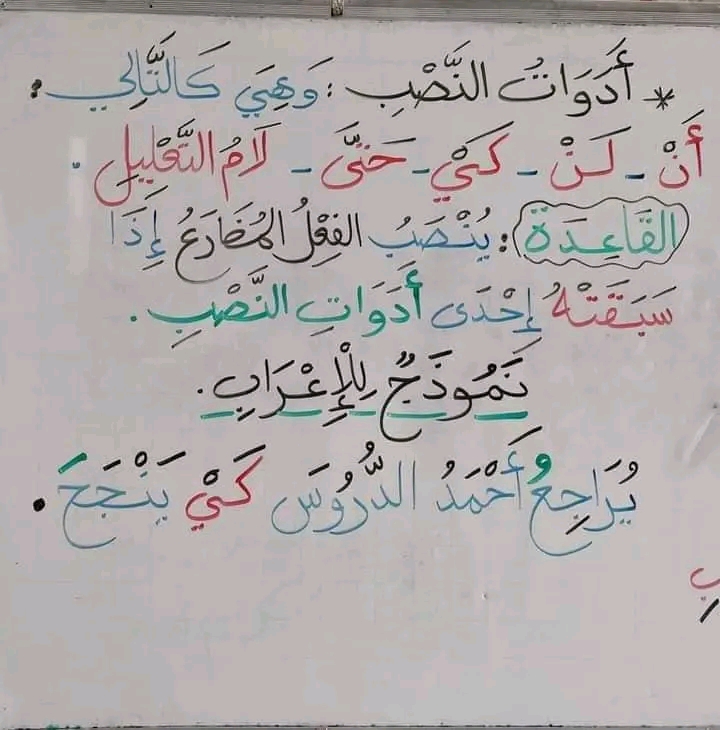 * أَدَوَاتُ النَّصْبِ : وَهِيَ كَالتَّالِي :
أَنْ - لَنْ - كَيْ - حَتَّى - لَامُ التَّعْلِيلِ .
القَاعِدَة : يُنْصَبُ الفِعْلُ المُضَارِعُ إِذَا
سَبَقَتْهُ إِحْدَى أَدَوَاتِ النَّصْبِ .
نَمُوذَجٌ لِلْإِعْرَابِ .
يُرَاجِعُ أَحْمَدُ الدُّرُوسَ كَيْ يَنْجَحَ .